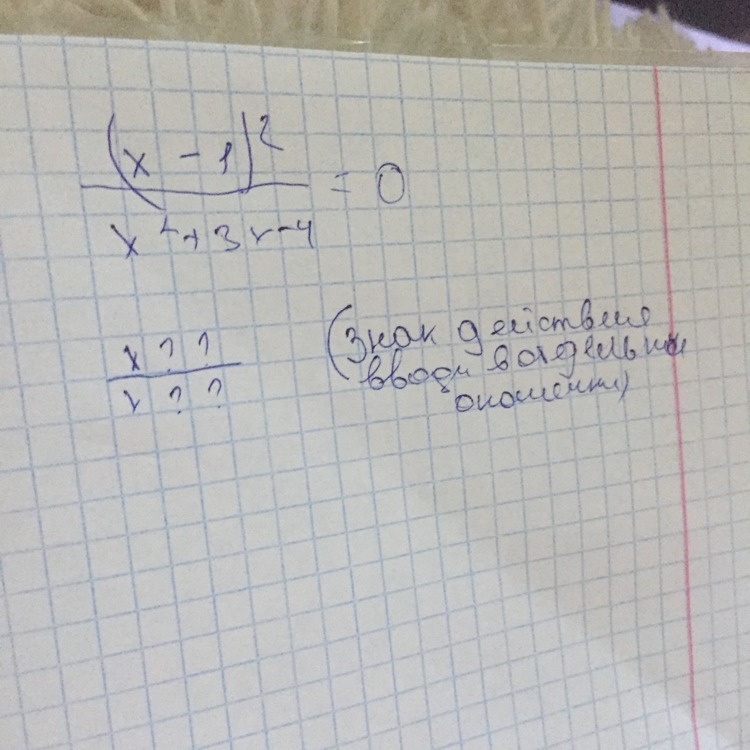 (x - 1)²
/ x² + 3x - 4 = 0
x ? ?
/ x ? ?
(Знак действия
вводи в отдельный
окошечки)